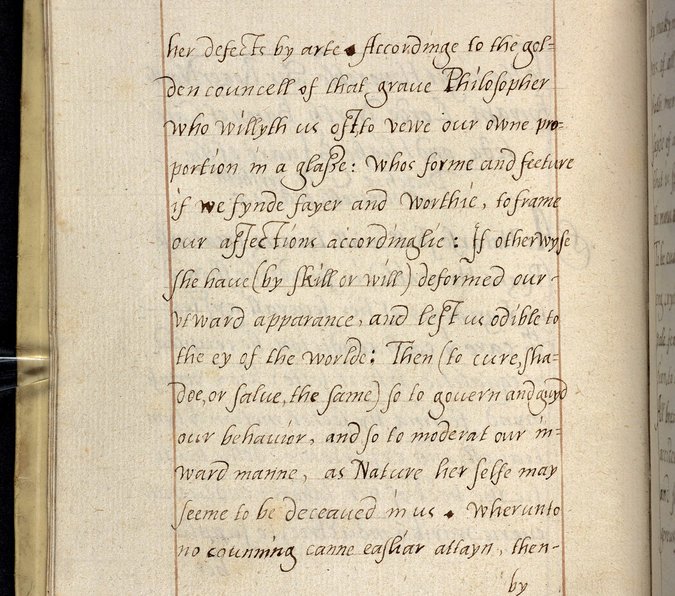 her defects by arte. Accordinge to the gol=
den councell of that graue Philosopher
who willyth us oft to vewe our owne pro=
portion in a glasse: whos forme and feeture
if we fynde fayer and worthie, to frame
our affections accordinglie: If otherwyse
she haue (by skill or will) deformed our
vtward apparance, and left us odible to
the ey of the worlde: Then (to cure, sha=
doe, or salue, the same) so to govern and guyd
our behavior, and so to moderat our in=
ward manne, as Nature her selfe may
seeme to be deceaued in us. Wherunto
no counning canne easliar attayn, then-
by